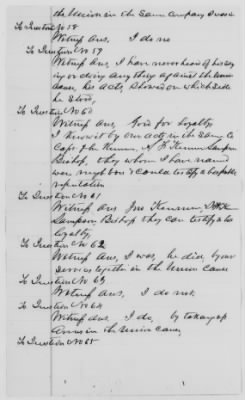 the Union in the same Company I was
To Question No 58
Witness Ans. I do no
To Question No 59
Witness Ans. I have never heard of his say
ing or doing any thing against the Union
Cause, his acts, showed on which side
he stood,
To Question No 60
Witness Ans. Good for Loyalty
I know it by our acts in the Same Co
Capt John Kinner, A H Kinner Sampson
Bishop, they whom I have named
were neighbors & could testify to his public
reputation
To Question No 61
Witness Ans Jno Kinner,
Sampson Bishop they can testify to his
loyalty,
To Question No 62
Witness Ans, I was, he did, your
services together in the Union Cause
To Question No 63
Witness Ans. I do not.
To Question No 64
Witness Ans. I do, by taking up
Arms in the Union Cause,
To Question No 65